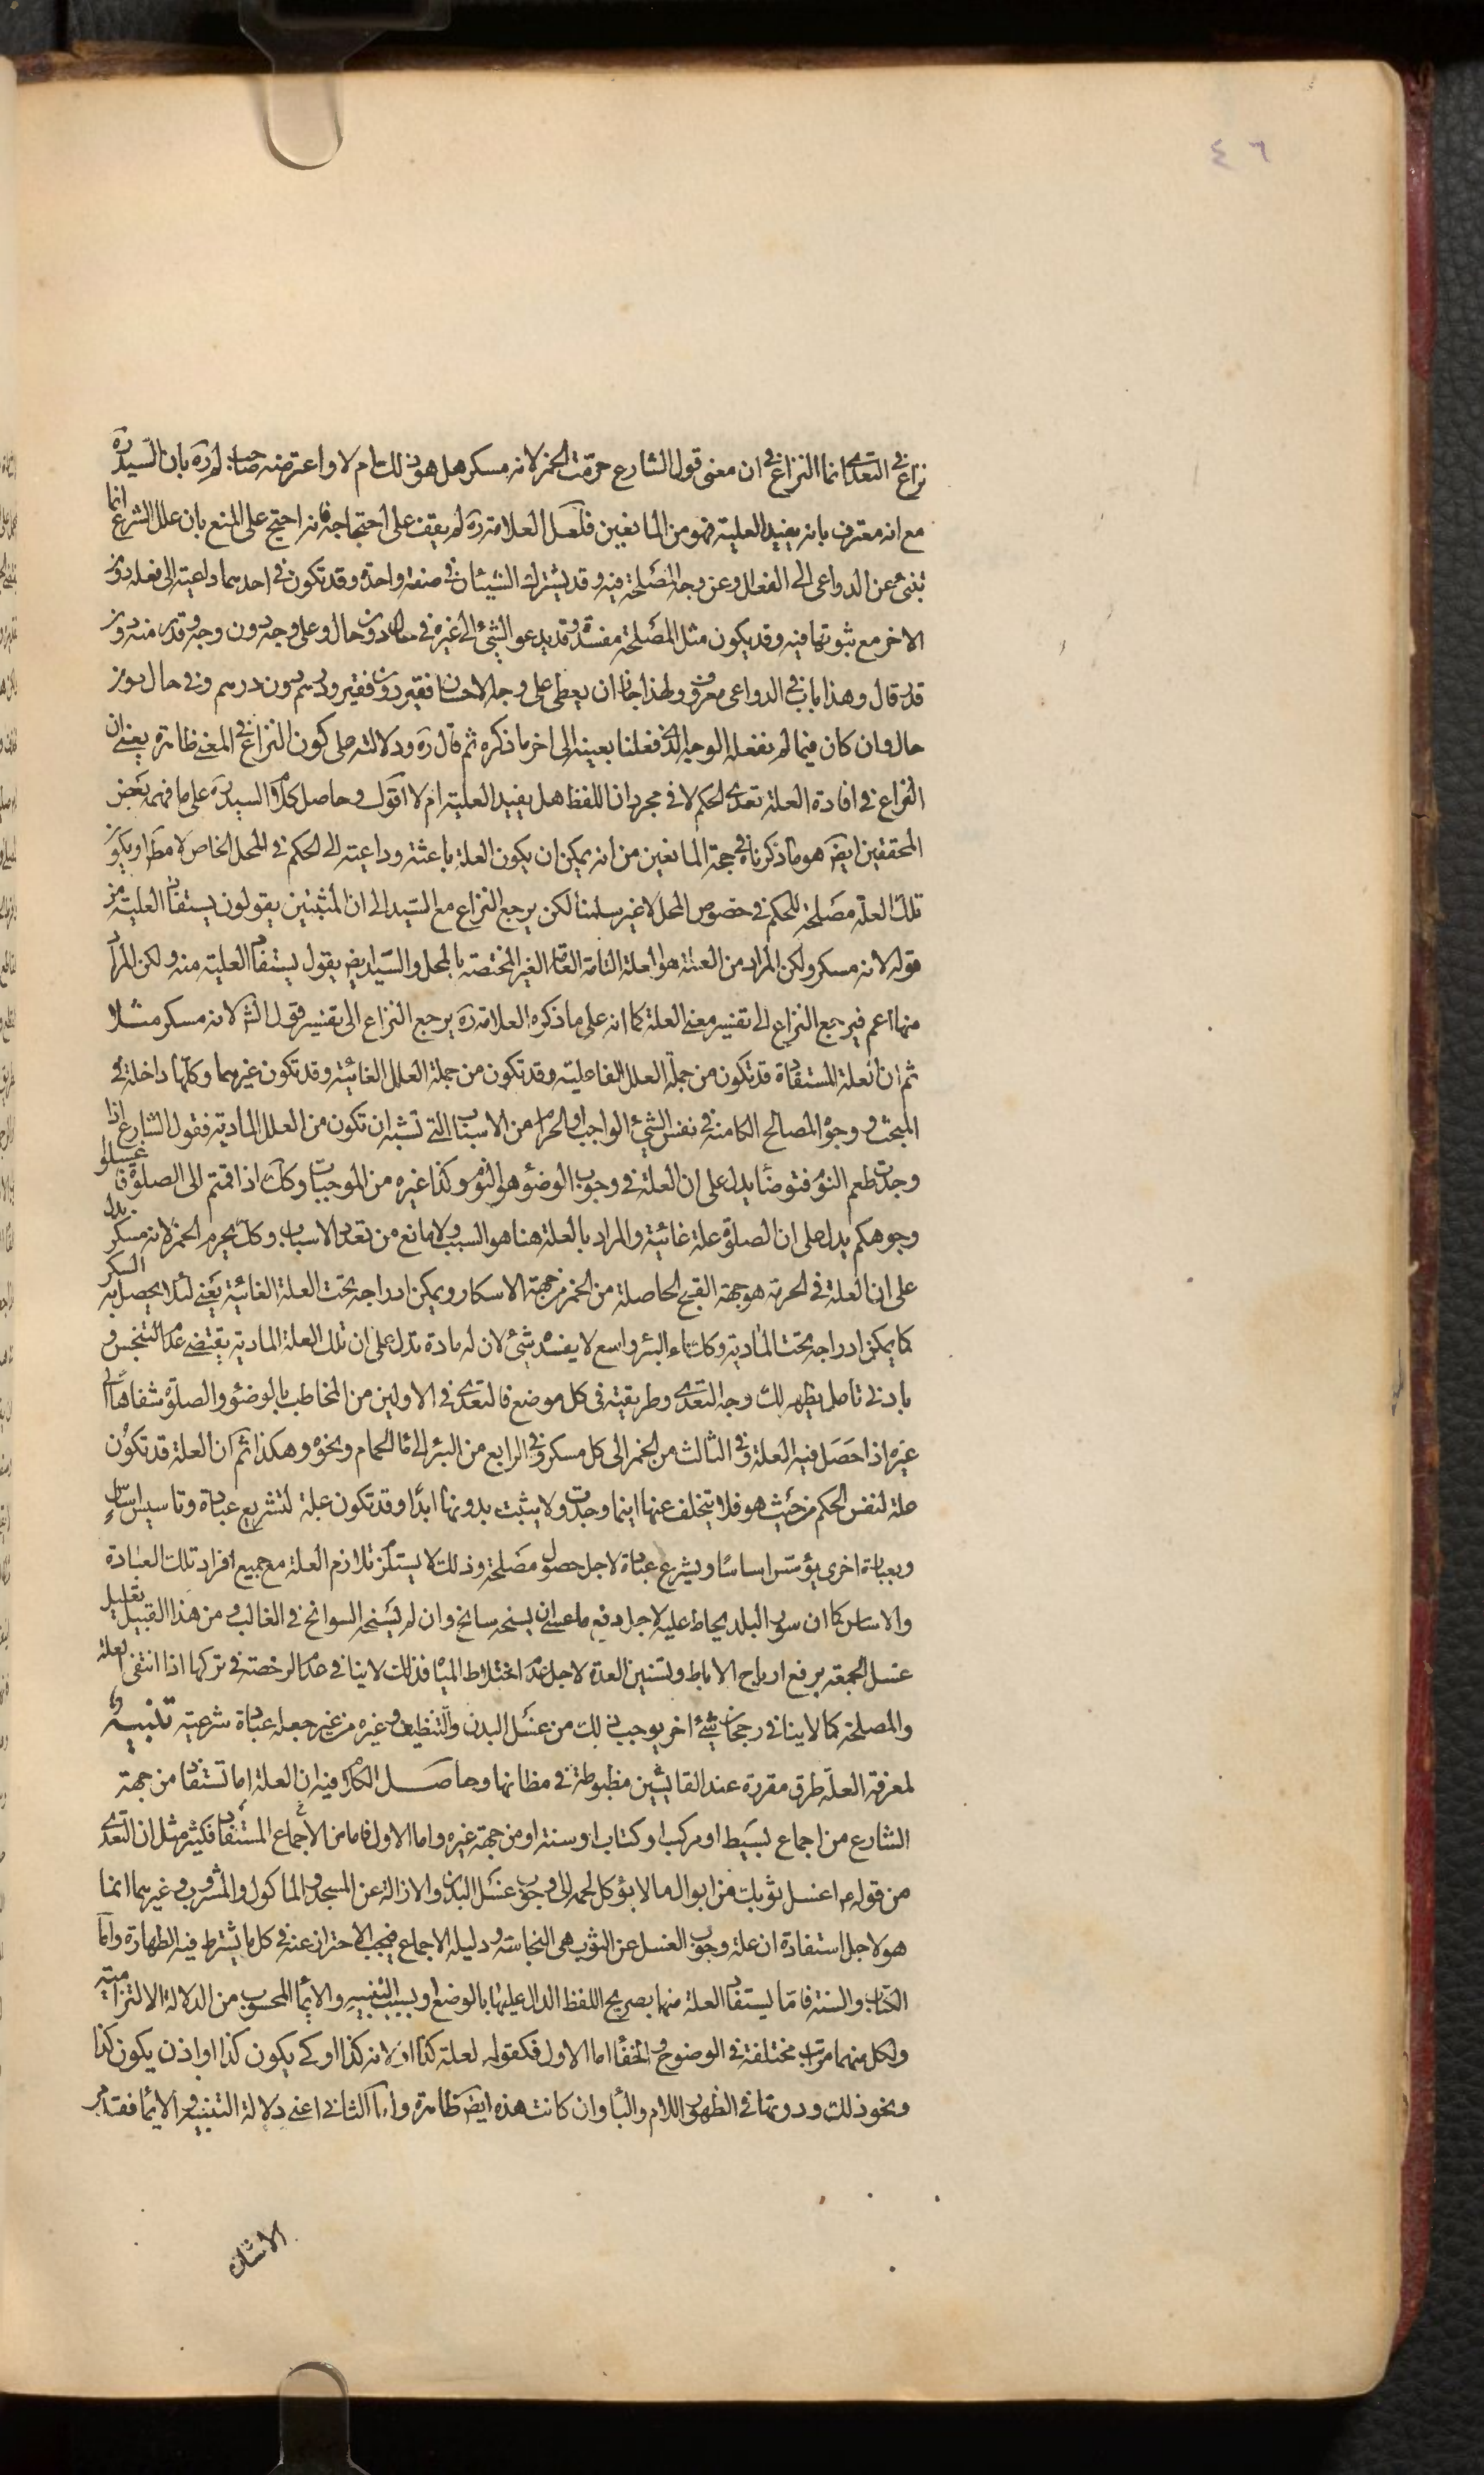 ٤٦
نزاع في التعدي انما النزاع في ان معنى قول الشارع حرمت الخمر لانه مسكر هل هو ذلك ام لا واعترضه صاحب لم ره بان السيد ره
مع انه معترف بانه يفيد العلية فهو من المانعين فلعل العلامة ره لم يقف على احتجاجه فانه احتج على المنع بان علل الشرع انما
تنبئ عن الدواعى الى الفعل او عن وجه المصلحة فيه وقد يشترك الشيئان في صفة واحدة وقد تكون في احدهما داعية الى فعله دون
الاخر مع ثبوتها فيه وقد يكون مثل المصلحة مفسدة وقد يدعو الشئ الى غيره في حال دون حال وعلى وجه دون وجه وقدر منه دون
قدر قال وهذا باب في الدواعى معروف ولهذا جاز ان يعطى على وجه الاحسان فقير دون فقير ودرهم دون درهم وفي حال دون
حال وان كان فيما لم نفعله الوجه الذي فعلنا بعينه الى اخر ما ذكره ثم قال ره ودلالته على كون النزاع في المعنى ظاهرة يعني ان
النزاع في افادة العلة تعدي الحكم لا في مجرد ان اللفظ هل يفيد العلية ام لا اقول وحاصل كلام السيد ره على ما فهمه بعض
المحققين ايضا هو ما ذكرناه في حجة المانعين من انه يمكن ان يكون العلة باعثة وداعية الى الحكم في المحل الخاص لا مط او يكون
تلك العلة مصلحة للحكم في خصوص المحل لا غير سلمنا لكن يرجع النزاع مع السيد الى ان المثبتين يقولون يستفاد العلية من
قوله لانه مسكر ولكن المراد من العلة هو العلة التامة العامة الغير المختصة بالمحل والسيد ايض يقول يستفاد العلية منه ولكن المراد
منها اعم فيرجع النزاع الى تفسير معنى العلة كما انه على ما ذكره العلامة ره يرجع النزاع الى تفسير قول الش لانه مسكر مثلا
ثم ان العلة المستفادة قد تكون من جملة العلل الفاعلية وقد تكون من جملة العلل الغائية وقد تكون غيرهما وكلها داخلة في
المبحث ووجوه المصالح الكامنة في نفس الشئ الواجب او الحرام من الاسباب التي تشبه ان تكون من العلل المادية فقول الشارع اذا
وجدت طعم النوم فتوضأ يدل على ان العلة في وجوب الوضوء هو النوم وكذا غيره من الموجبات وكك اذا قمتم الى الصلوة فاغسلوا
وجوهكم يدل على ان الصلوة علة غائية والمراد بالعلة هنا هو السبب ولا مانع من تعدد الاسباب وكك يحرم الخمر لانه مسكر يدل
على ان العلة في الحرمة هو جهة القبح الحاصلة من الخمر من جهة الاسكار ويمكن ادراجه تحت العلة الغائية يعني لئلا يحصل به السكر
كما يمكن ادراجه تحت المادية وكك ماء البئر واسع لا يفسده شئ لان له مادة تدل على ان تلك العلة المادية يقتضي عدم التنجس و
بادنى تامل يظهر لك وجه التعدي وطريقته في كل موضع فالتعدي في الاولين من المخاطب بالوضوء والصلوة شفاها الى
غيره اذا حصل فيه العلة وفي الثالث من الخمر الى كل مسكر وفي الرابع من البئر الى ماء الحمام ونحوه وهكذا ثم ان العلة قد تكون
علة لنفس الحكم من حيث هو فلا يتخلف عنها اينما وجدت ولا يثبت بدونها ابدا وقد تكون علة لتشريع عبادة وتاسيس اساس
وبعبارة اخرى يؤسس اساسا ويشرع عبادة لاجل حصول مصلحة وذلك لا يستلزم تلازم العلة مع جميع افراد تلك العبادة
والاساس كما ان سور البلد يحاط عليه لاجل دفع ما عسى ان يسنحه سانح وان لم يسنحه السوانح في الغالب ومن هذا القبيل تعليل
غسل الجمعة برفع ارياح الاباط وتسنين العدة لاجل عدم اختلاط المياه فذلك لا ينافي عدم الرخصة في تركها اذا انتفى العلة
والمصلحة كما لا ينافي رجحان شئ اخر يوجب ذلك من غسل البدن والتنظيف وغيره من غير جعله عبادة شرعية تنبيه
لمعرفة العلة طرق مقررة عند القايسين مظبوطة في مظانها وحاصل الكلام فيه ان العلة اما تستفاد من جهة
الشارع من اجماع بسيط او مركب او كتاب او سنة او من جهة غيره واما الاول فاما من الاجماع المستفاد فكثير مثل ان التعدي
من قوله ع اغسل ثوبك من ابوال ما لا يؤكل لحمه الى وجوب غسل البدن والازالة عن المسجد والماكول والمشروب وغيرهما انما
هو لاجل استفادة ان علة وجوب الغسل عن الثوب هي النجاسة ودليله الاجماع فيجب الاحتراز عنه في كل ما يشترط فيه الطهارة واما
الكتاب والسنة فاما يستفاد العلة منها بصريح اللفظ الدال عليها بالوضع او بسبب التنبيه والايماء المحسوب من الدلالة الالتزامية
ولكل منهما مراتب مختلفة في الوضوح والخفاء اما الاول فكقوله لعلة كذا او لانه كذا او كي يكون كذا او اذن يكون كذا
ونحو ذلك ودونها في الظهور اللام والباء وان كانت هذه ايض ظاهرة واما الثاني اعني دلالة التنبيه والايماء فقد مر
الاشارة